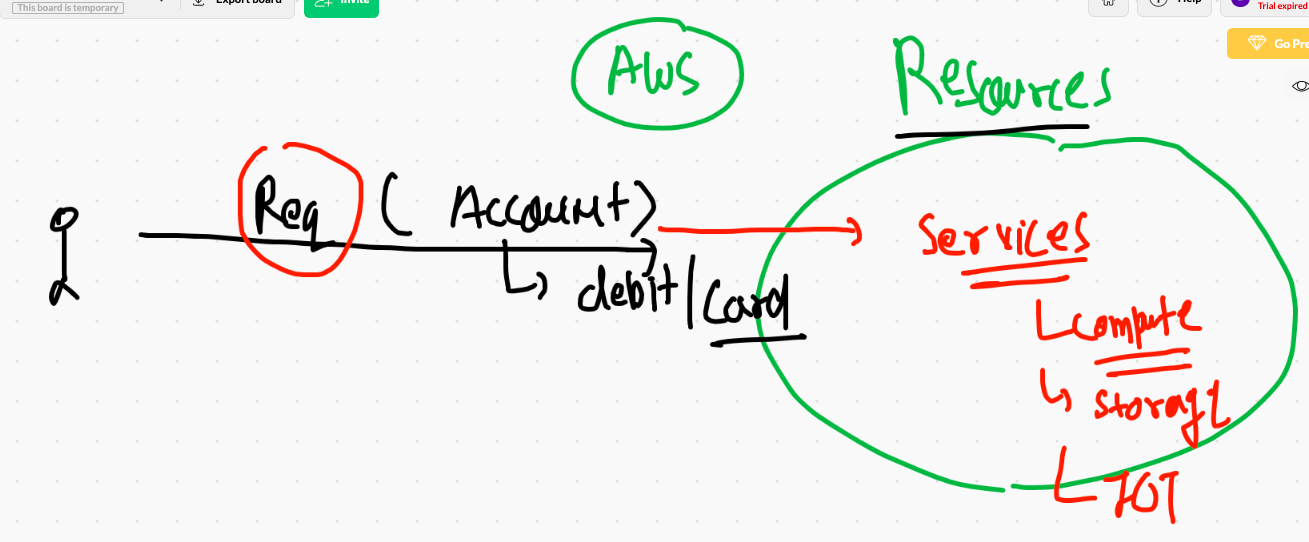 This board is temporary
Export board
Invite
Help
Trial expired
Go Pre
AWS
Resources
Req ( Account)
debit/card
Services
compute
storage
IOT